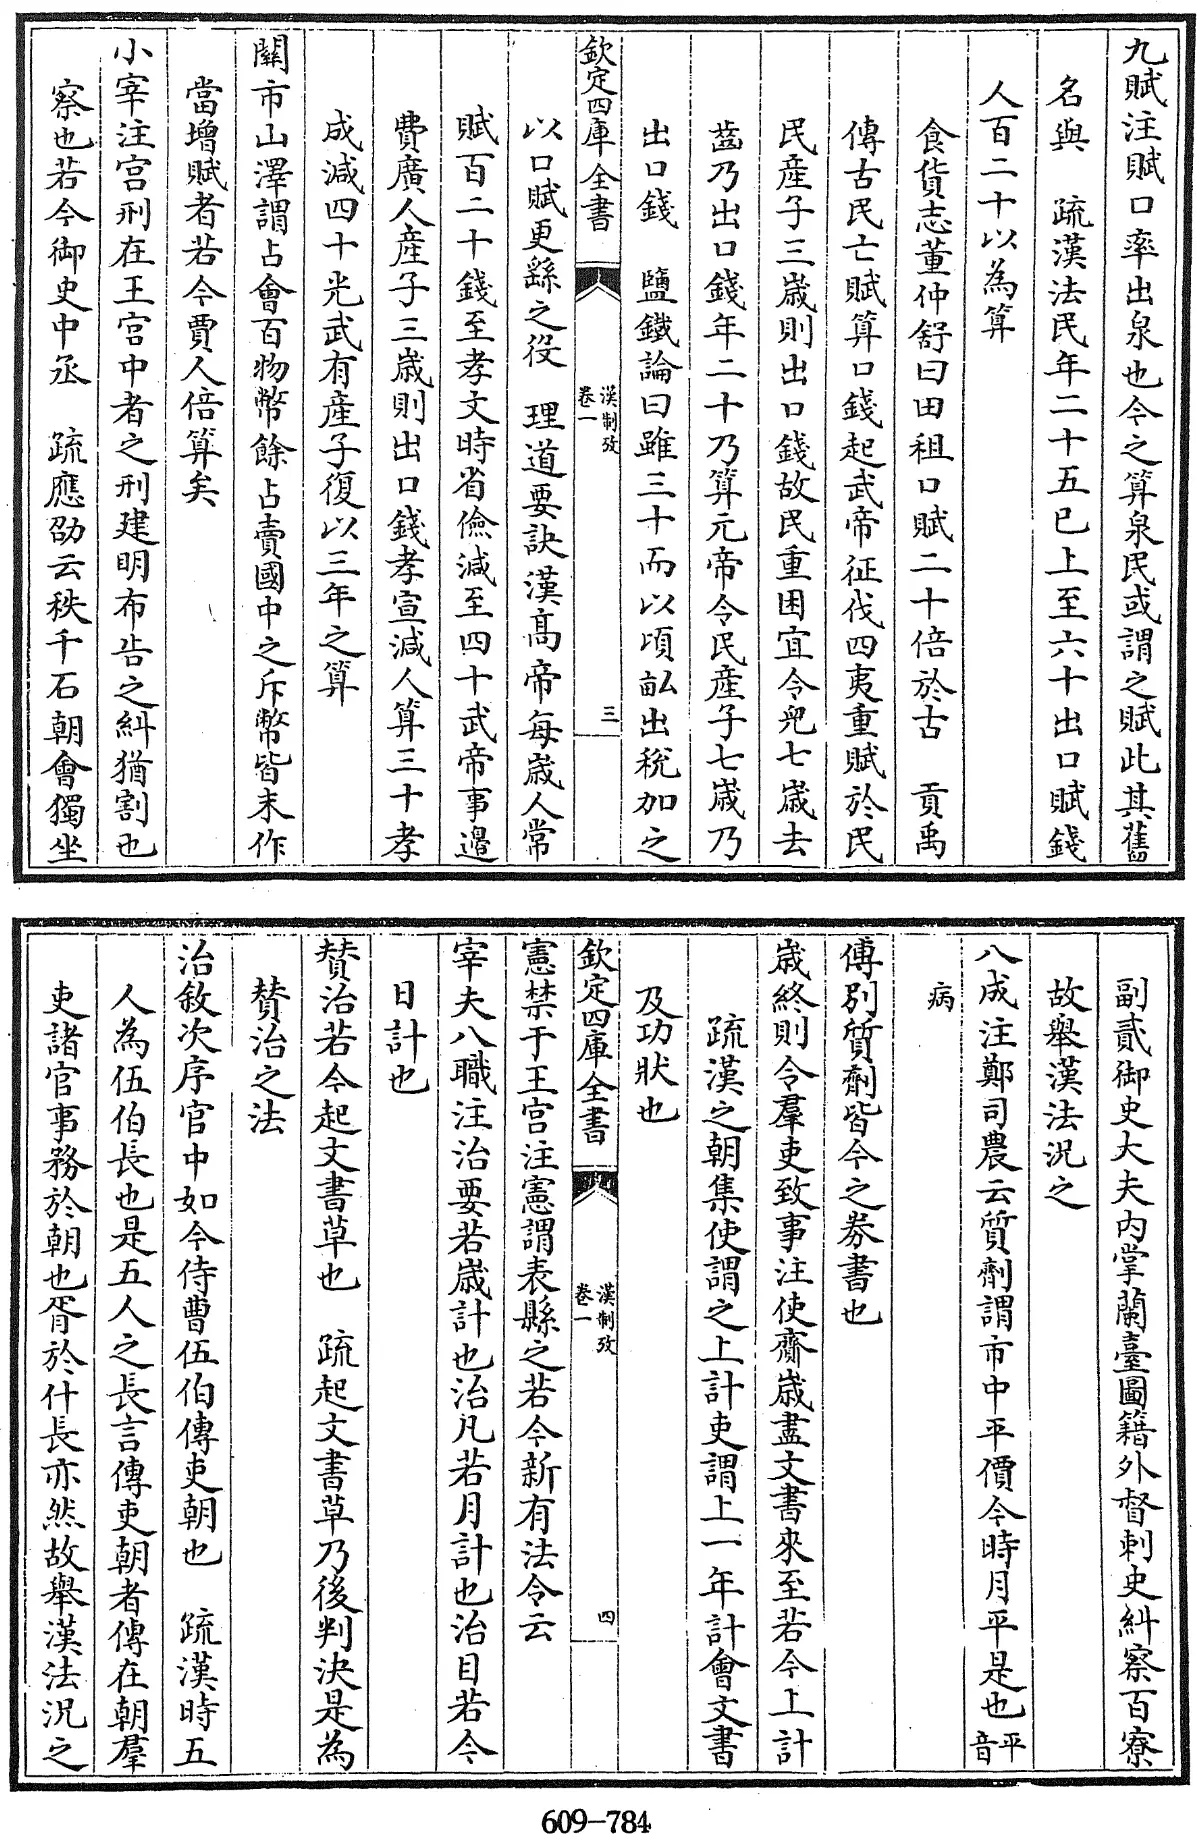 九賦注賦口率出泉也今之算泉民或謂之賦此其舊
名與　疏漢法民年二十五已上至六十出口賦錢
人百二十以為算
食貨志董仲舒曰田租口賦二十倍於古　貢禹
傳古民亡賦算口錢起武帝征伐四夷重賦於民
民產子三歲則出口錢故民重困宜令兒七歲去
齒乃出口錢年二十乃算元帝令民產子七歲乃
出口錢　鹽鐵論曰雖三十而以頃畝出稅加之
欽定四庫全書
漢制攷
卷一
三
以口賦更繇之役　理道要訣漢高帝每歲人常
賦百二十錢至孝文時省儉減至四十武帝事邊
費廣人產子三歲則出口錢孝宣減人算三十孝
成減四十光武有產子復以三年之算
關市山澤謂占會百物幣餘占賣國中之斥幣皆末作
當增賦者若今賈人倍算矣
小宰注宫刑在王宫中者之刑建明布告之糾猶割也
察也若今御史中丞　疏應劭云秩千石朝會獨坐
副貳御史大夫内掌蘭臺圖籍外督刺史糾察百寮
故舉漢法況之
八成注鄭司農云質劑謂市中平價今時月平是也平音
病
傅別質劑皆今之券書也
歲終則令羣吏致事注使齎歲盡文書來至若今上計
疏漢之朝集使謂之上計吏謂上一年計會文書
及功狀也
欽定四庫全書
漢制攷
卷一
四
憲禁于王宫注憲謂表縣之若今新有法令云
宰夫八職注治要若歲計也治凡若月計也治目若今
日計也
贊治若今起文書草也　疏起文書草乃後判決是為
贊治之法
治敘次序官中如今侍曹伍伯傳吏朝也　疏漢時五
人為伍伯長也是五人之長言傳吏朝者傳在朝羣
吏諸官事務於朝也胥於什長亦然故舉漢法況之
609-784